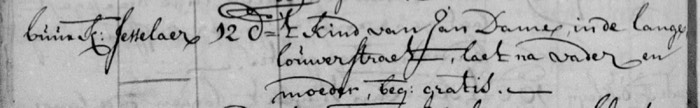 buurk: Jesselaer 12 d= 't kind van Jan Dames, in de lange
louwerstraet, laet na vader en
moeder, beg: gratis.